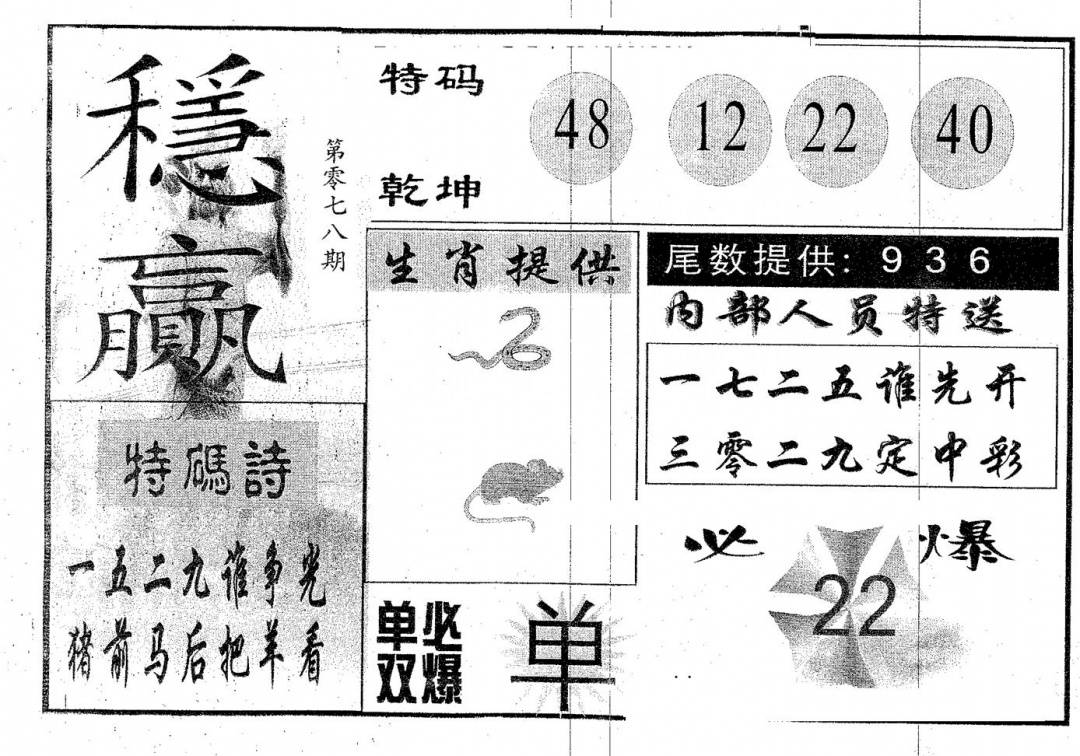 穩贏
第零七八期
特码
乾坤
48 12 22 40
生肖提供
尾数提供: 9 3 6
内部人员特送
一七二五谁先开
三零二九定中彩
特碼詩
一五二九谁争光
猪前马后把羊看
单双必爆
单
必爆
22